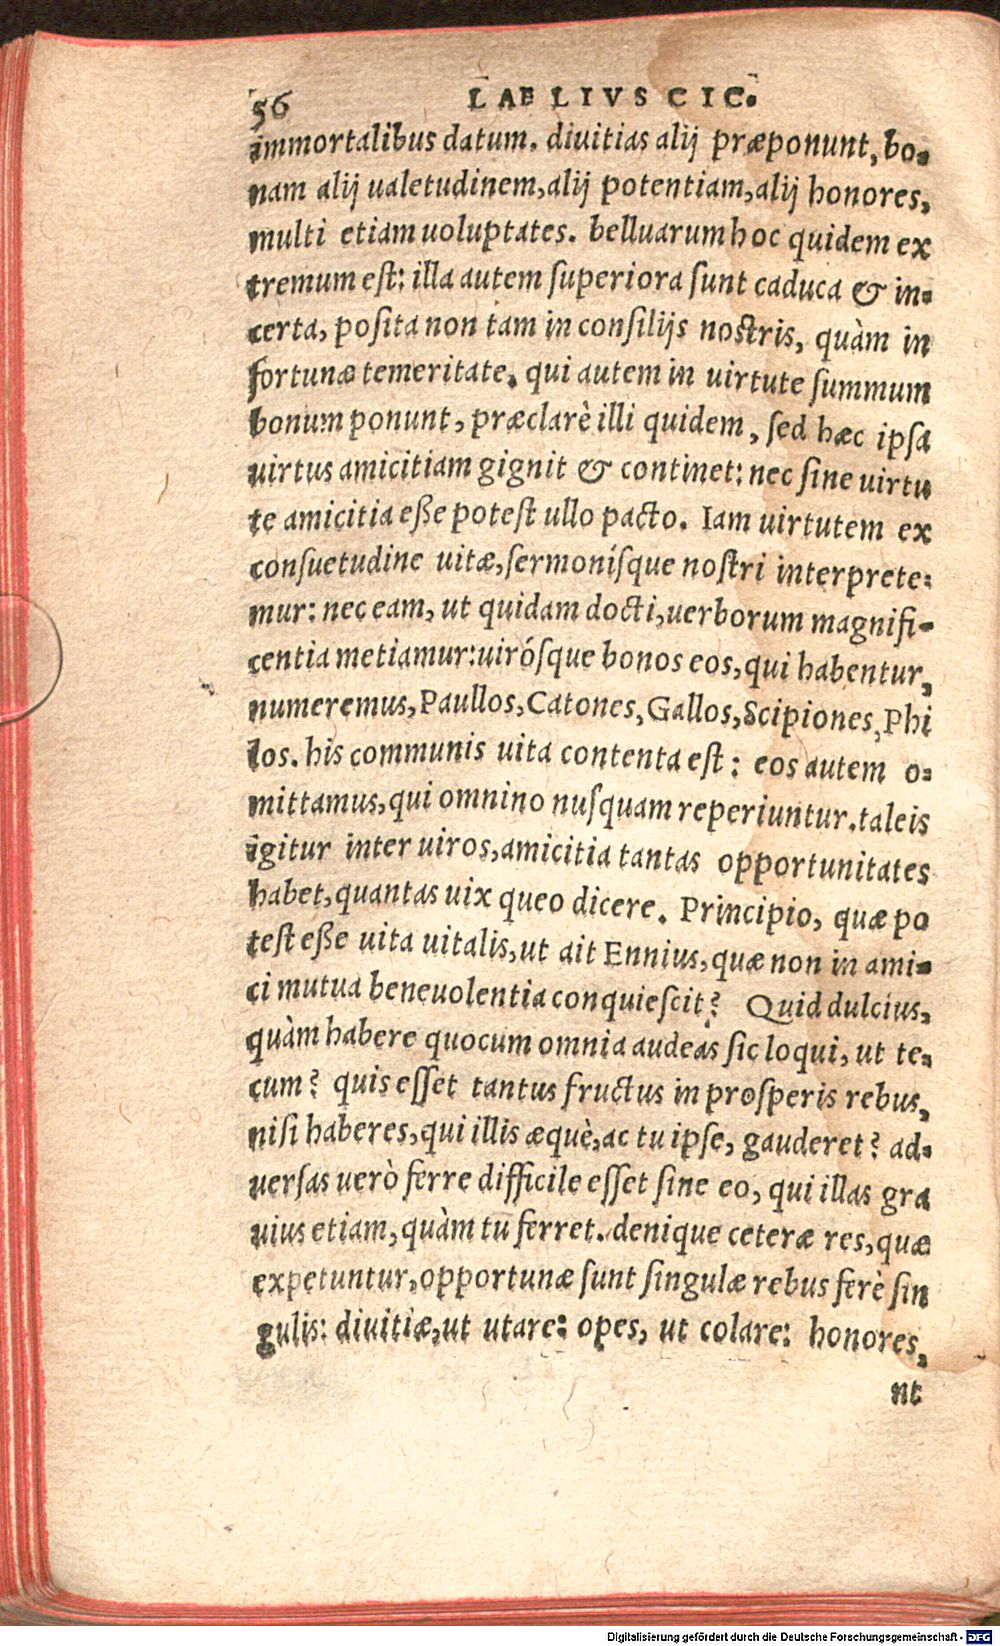 56 LAELIVS CIC.
immortalibus datum. diuitias alij præponunt, bo-
nam alij ualetudinem, alij potentiam, alij honores,
multi etiam uoluptates. belluarum hoc quidem ex
tremum eſt: illa autem ſuperiora ſunt caduca & in-
certa, poſita non tam in conſilijs noſtris, quàm in
fortunæ temeritate. qui autem in uirtute ſummum
bonum ponunt, præclarè illi quidem, ſed hæc ipſa
uirtus amicitiam gignit & continet: nec ſine uirtu
te amicitia eße poteſt ullo pacto. Iam uirtutem ex
conſuetudine uitæ, ſermoníſque noſtri interprete-
mur: nec eam, ut quidam docti, uerborum magnifi-
centia metiamur: uiróſque bonos eos, qui habentur,
numeremus, Paullos, Catones, Gallos, Scipiones, Phi
los. his communis uita contenta eſt: eos autem o-
mittamus, qui omnino nuſquam reperiuntur. taleis
igitur inter uiros, amicitia tantas opportunitates
habet, quantas uix queo dicere. Principio, quæ po
teſt eße uita uitalis, ut ait Ennius, quæ non in ami-
ci mutua beneuolentia conquieſcit? Quid dulcius,
quàm habere quocum omnia audeas ſic loqui, ut te-
cum? quis eſſet tantus fructus in proſperis rebus,
niſi haberes, qui illis æquè, ac tu ipſe, gauderet? ad-
uerſas uerò ferre difficile eſſet ſine eo, qui illas gra
uius etiam, quàm tu ferret. denique ceteræ res, quæ
expetuntur, opportunæ ſunt ſingulæ rebus ferè ſin
gulis: diuitiæ, ut utare: opes, ut colare: honores,
nt
Digitalisierung gefördert durch die Deutsche Forschungsgemeinschaft - DFG